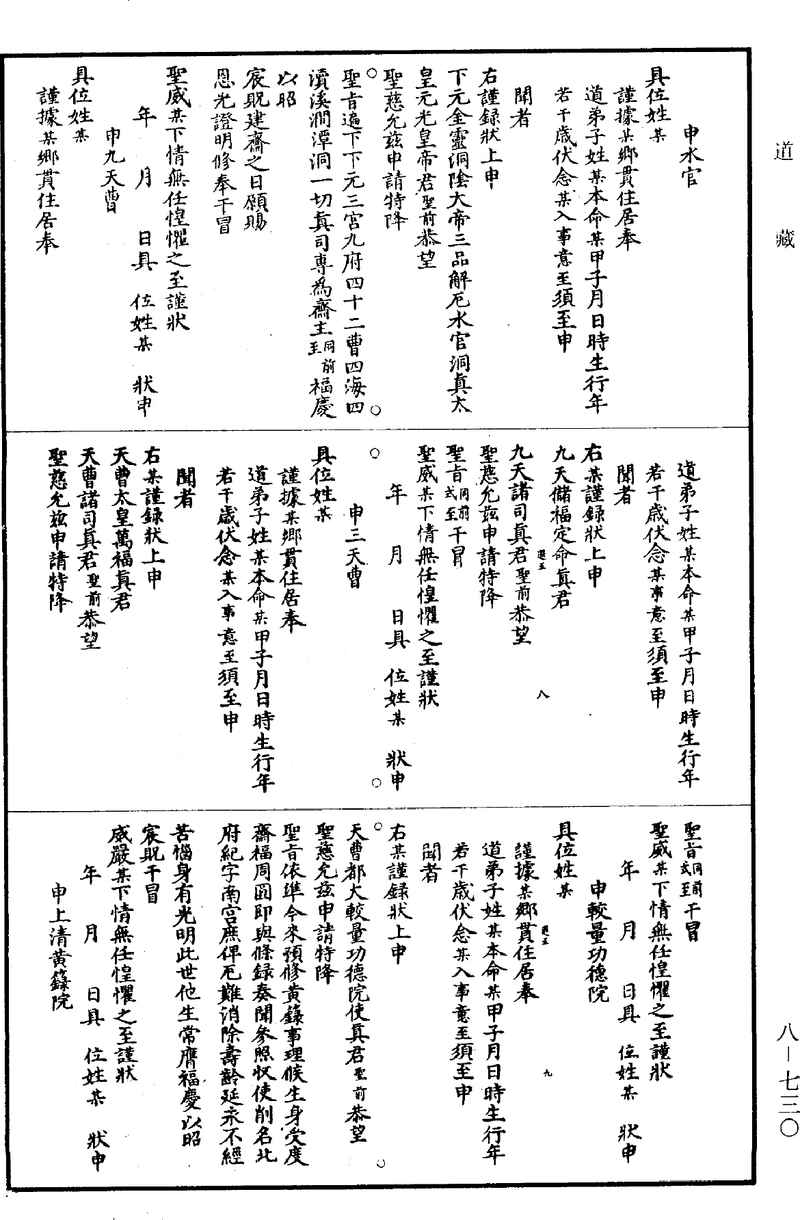 道藏
申水官
具位姓某
謹據某鄉貫住居奉
道弟子姓某本命某甲子月日時生行年
若干歲伏念某入事意至須至申
聞者
右謹錄狀上申
下元金靈洞陰大帝三品解厄水官洞真太
皇元光皇帝君聖前恭望
聖慈允茲申請特降
聖旨遍下下元三宮九府四十二曹四海四
瀆溪澗潭洞一切真司專為齋主同前至福慶
以昭
宸眖建齋之日願賜
恩光證明修奉干冒
聖威某下情無任惶懼之至謹狀
年月日具位姓某狀申
申九天曹
具位姓某
謹據某鄉貫住居奉
道弟子姓某本命某甲子月日時生行年
若干歲伏念某事意至須至申
聞者
右某謹錄狀上申
九天儲福定命真君
九天諸司真君聖前恭望
聖慈允茲申請特降
聖旨同前式至干冒
聖威某下情無任惶懼之至謹狀
年月日具位姓某狀申
申三天曹
具位姓某
謹據某鄉貫住居奉
道弟子姓某本命某甲子月日時生行年
若干歲伏念某入事意至須至申
聞者
右某謹錄狀上申
天曹太皇萬福真君
天曹諸司真君聖前恭望
聖慈允茲申請特降
聖旨同前式至干冒
聖威某下情無任惶懼之至謹狀
年月日具位姓某狀申
申較量功德院
具位姓某
謹據某鄉貫住居奉
道弟子姓某本命某甲子月日時生行年
若干歲伏念某入事意至須至申
聞者
右某謹錄狀上申
天曹都大較量功德院使真君聖前恭望
聖慈允茲申請特降
聖旨依準今來預修黃籙事理候生身受度
齋福周圓即與條録奏聞參照收使削名北
府紀字南宮庶俾厄難消除壽齡延永不經
苦惱身有光明此世他生常膺福慶以昭
宸眖干冒
威嚴某下情無任惶懼之至謹狀
年月日具位姓某狀申
申上清黃籙院
八
九
八－七三〇